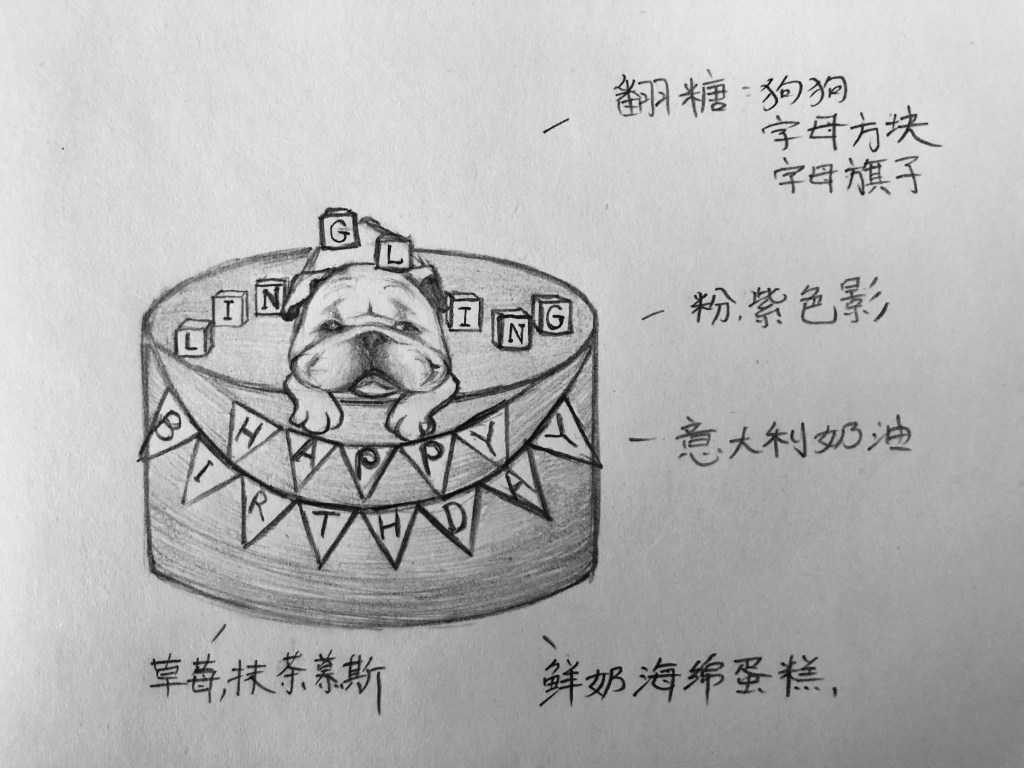 翻糖：狗狗
字母方块
字母旗子
G L
L I N I N G
粉.紫色影
意大利奶油
H A P P Y
B I R T H D A Y
草莓,抹茶慕斯
鲜奶海绵蛋糕.